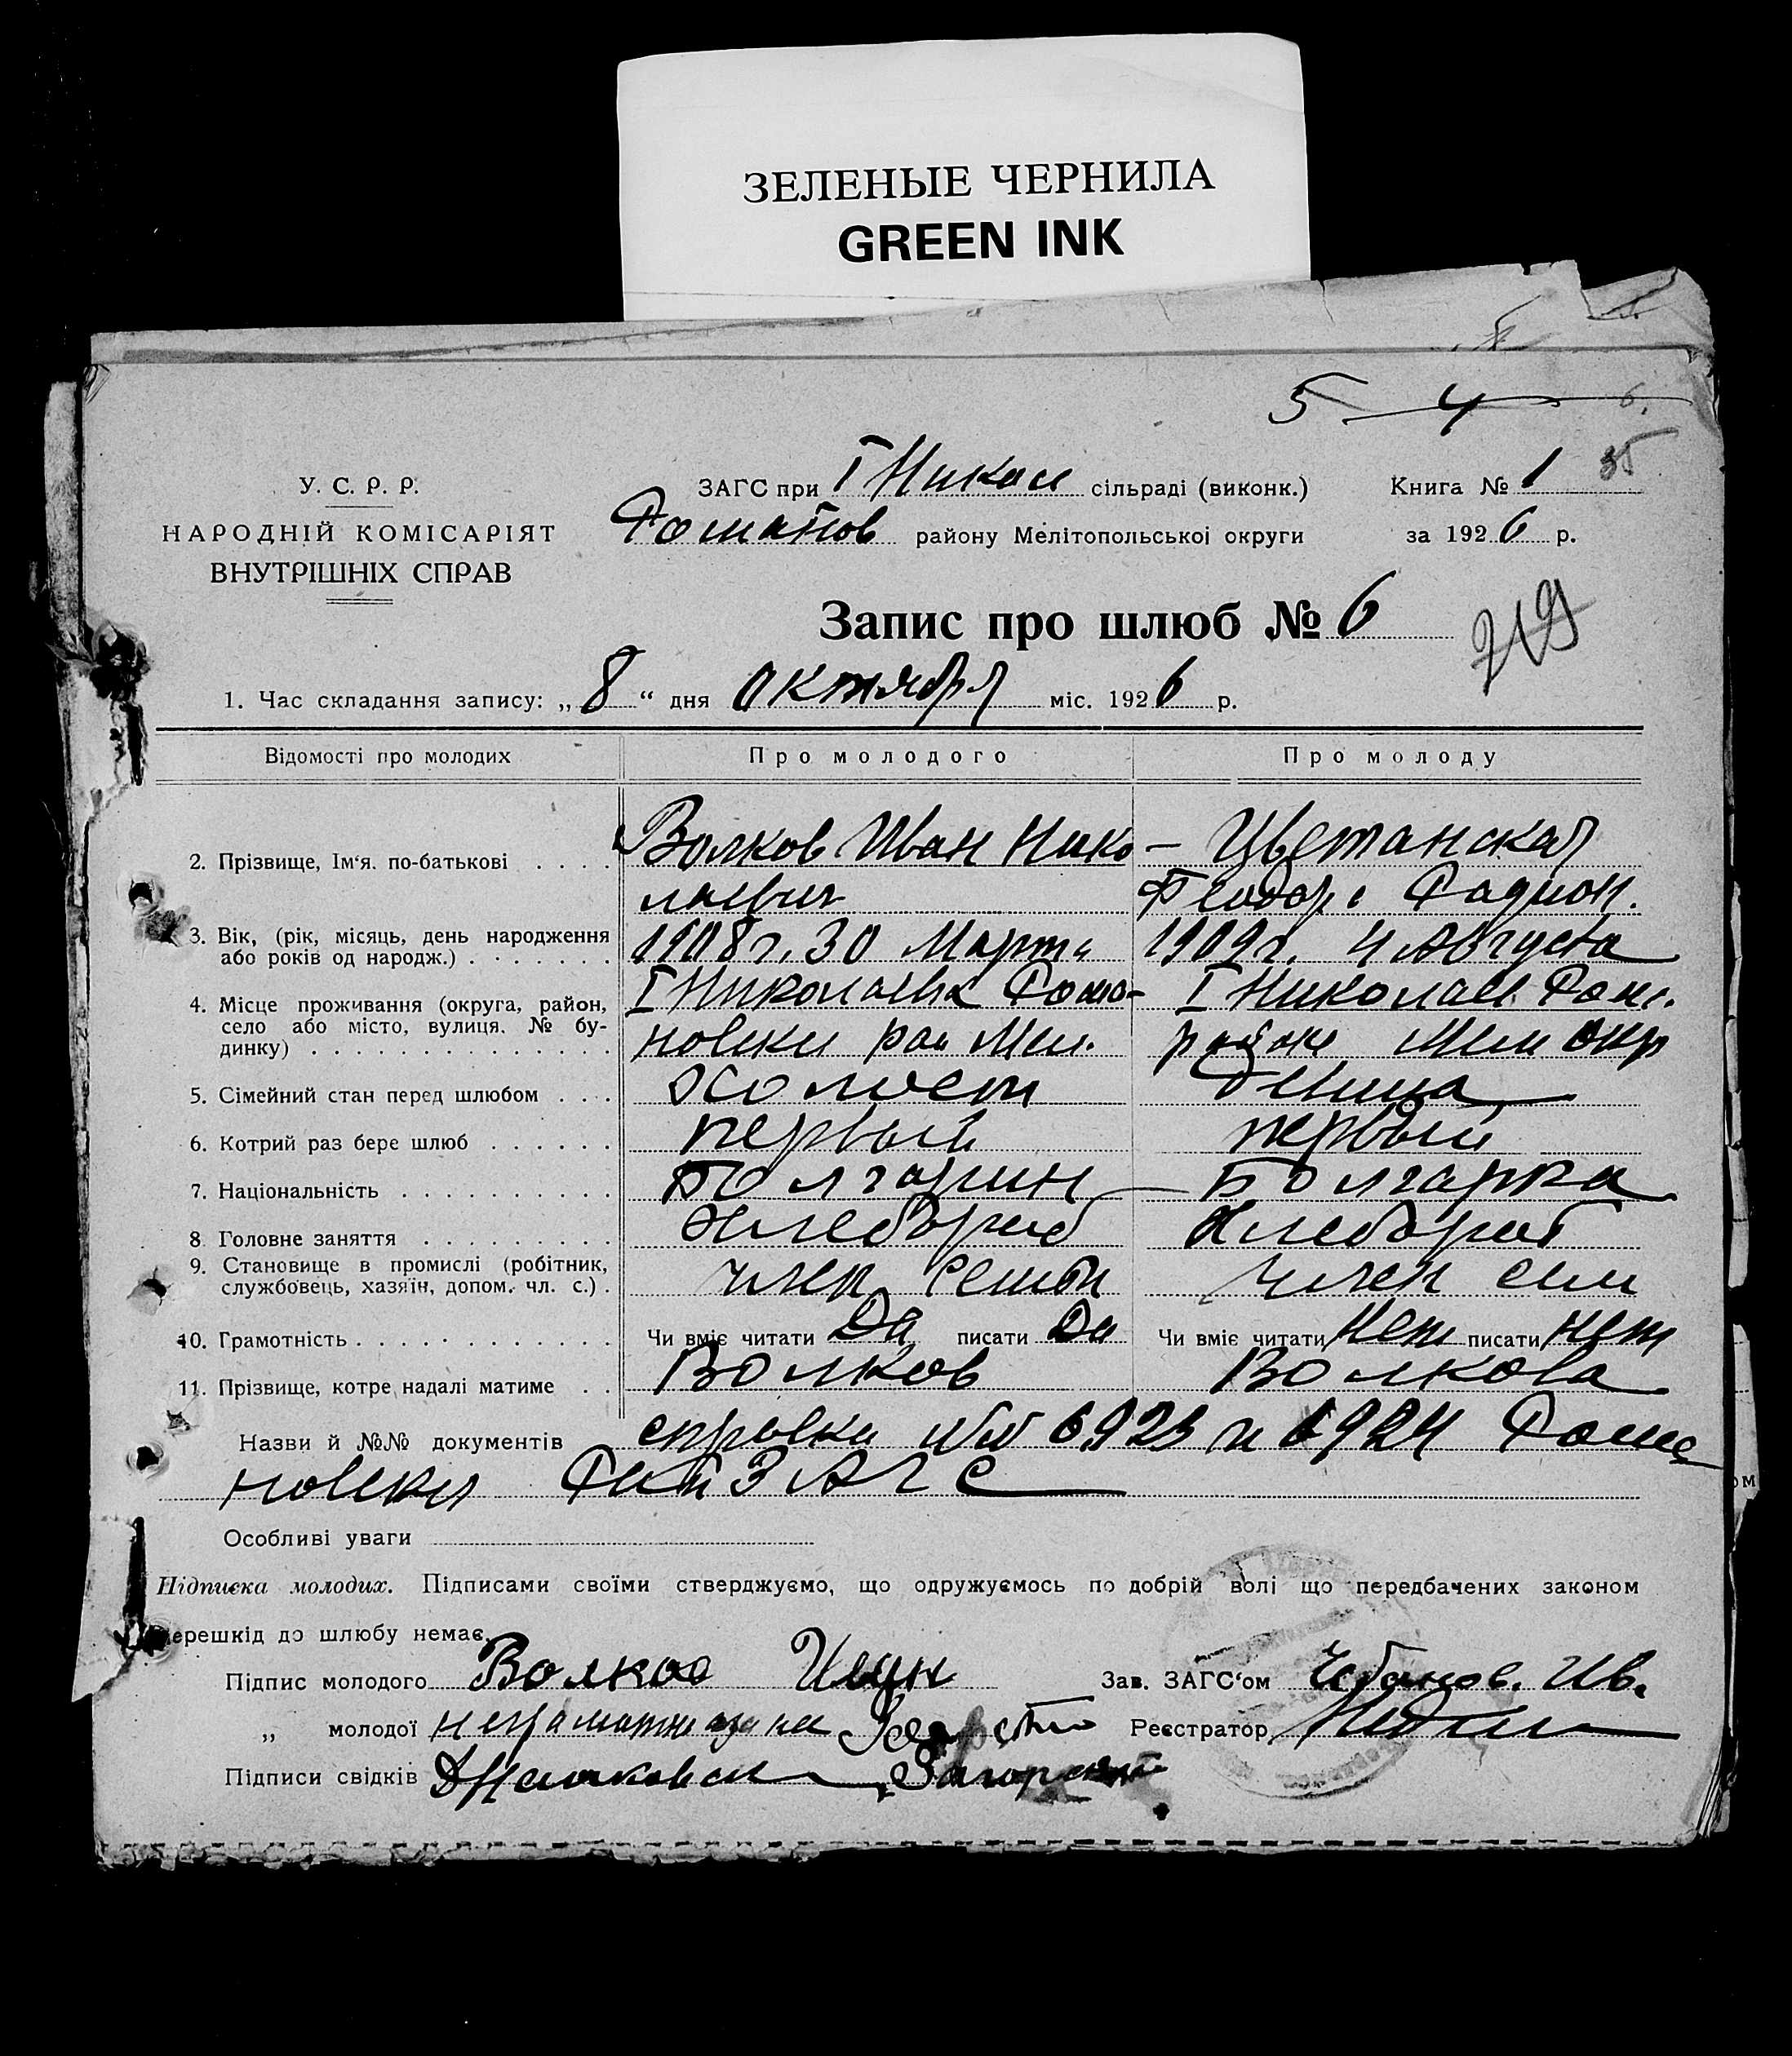 ЗЕЛЕНЫЕ ЧЕРНИЛА
GREEN INK
5 4 6.
У. С. Р. Р.
НАРОДНІЙ КОМІСАРІЯТ
ВНУТРІШНІХ СПРАВ
ЗАГС при I Никол сільраді (виконк.)
Романов району Мелітопольської округи
Книга № 1 35
за 1926 р.
Запис про шлюб № 6
219
1. Час складання запису: „8“ дня октября міс. 1926 р.
Відомості про молодих Про молодого Про молоду
2. Прізвище, Ім'я. по-батькові Волков Иван Нико- Цветанская
лаевич Феодора Радион.
3. Вік, (рік, місяць, день народження 1908 г. 30 Марта 1909 г. 4 Августа
або років од народж.)
4. Місце проживання (округа, район, I Николаевка Рома- I Николаев. Ром.
село або місто, вулиця. № бу- новски рай Мел. района Мел окр
динку)
5. Сімейний стан перед шлюбом холост девица
6. Котрий раз бере шлюб первый первый
7. Національність Болгарин Болгарка
8 Головне заняття Хлебороб Хлебороб
9. Становище в промислі (робітник, член семьи член сем
службовець, хазяїн, допом. чл. с.)
10. Грамотність Чи вміє читати Да писати Да Чи вміє читати Нет писати нет
11. Прізвище, котре надалі матиме Волков Волкова
Назви й №№ документів справки №№ 6923 и 6924 Рома
новски РайЗАГС
Особливі уваги
Підписка молодих. Підписами своїми стверджуємо, що одружуємось по добрій волі що передбачених законом
перешкід до шлюбу немає.
Підпис молодого Волков Иван Зав. ЗАГС'ом Чебанов. Ив.
„ молодої неграмотна Реєстратор
Підписи свідків